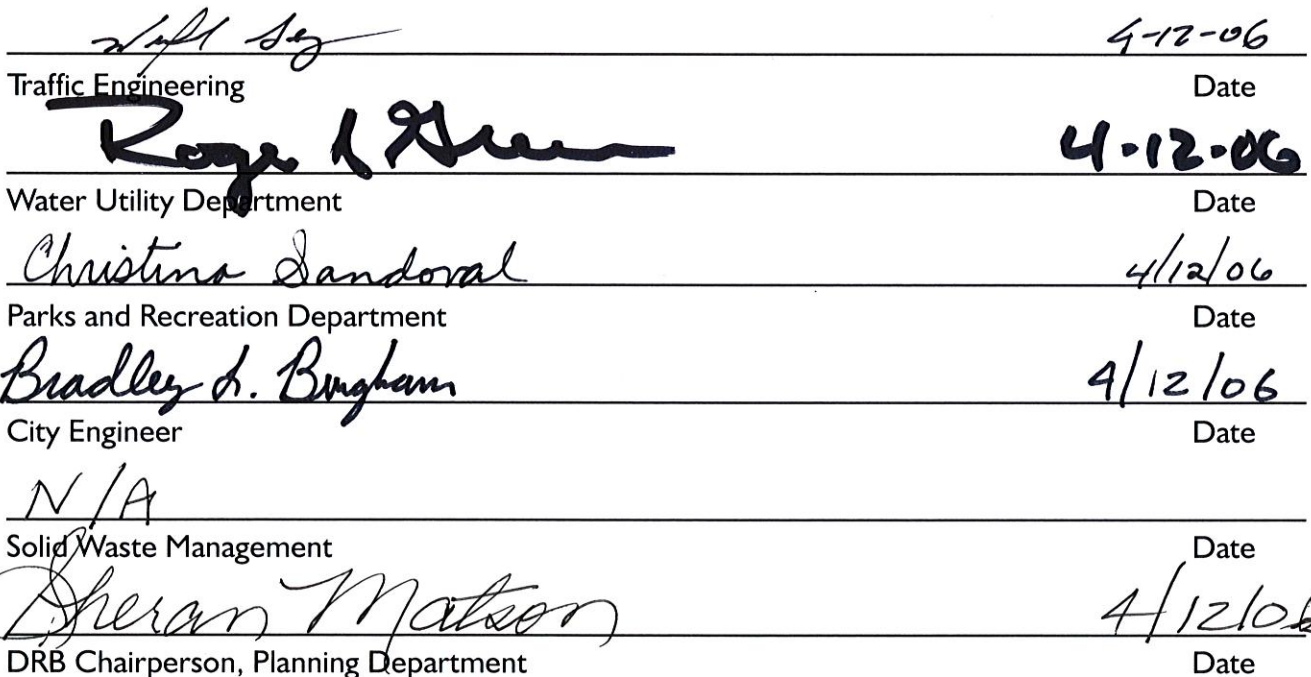 4-12-06
Traffic Engineering Date
Roger Green 4-12-06
Water Utility Department Date
Christina Sandoval 4/12/06
Parks and Recreation Department Date
Bradley L. Bingham 4/12/06
City Engineer Date
N/A
Solid Waste Management Date
Sheran Matson 4/12/06
DRB Chairperson, Planning Department Date